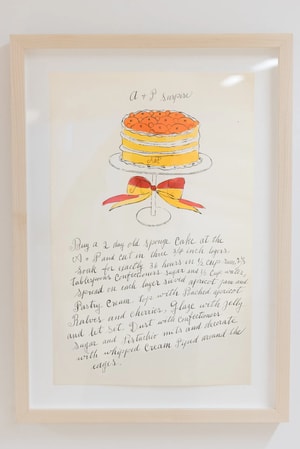 A + P Surprise
Buy a 2 day old sponge cake at the
A + P and cut in three 3/4 inch layers.
Soak for exactly 36 hours in 1/2 cup rum,
tablespoons confectioners sugar and 1/2 cup water,
Spread on each layer sieved apricot jam and
Pastry Cream. Top with Poached apricot
Halves and cherries. Glaze with jelly
and let sit. Dust with confectioners
Sugar and Pistachio nuts and decorate
with whipped Cream Piped around the
edges.